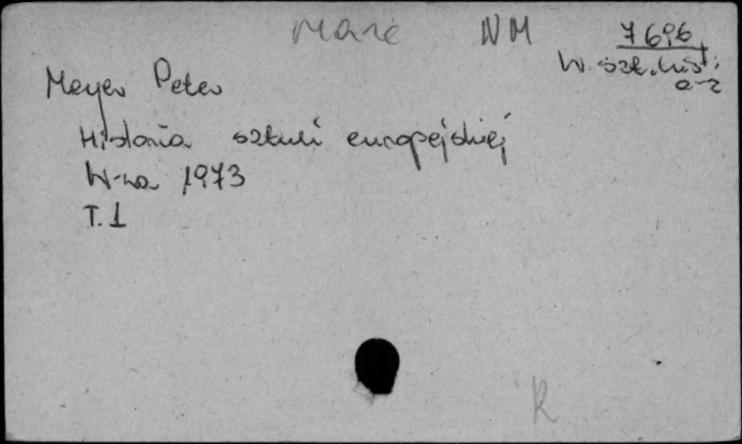 NM 7696
W szt. hist.
a-z
Meyer Peter
Historia sztuki europejskiej
W-wa 1973
T. 1
R